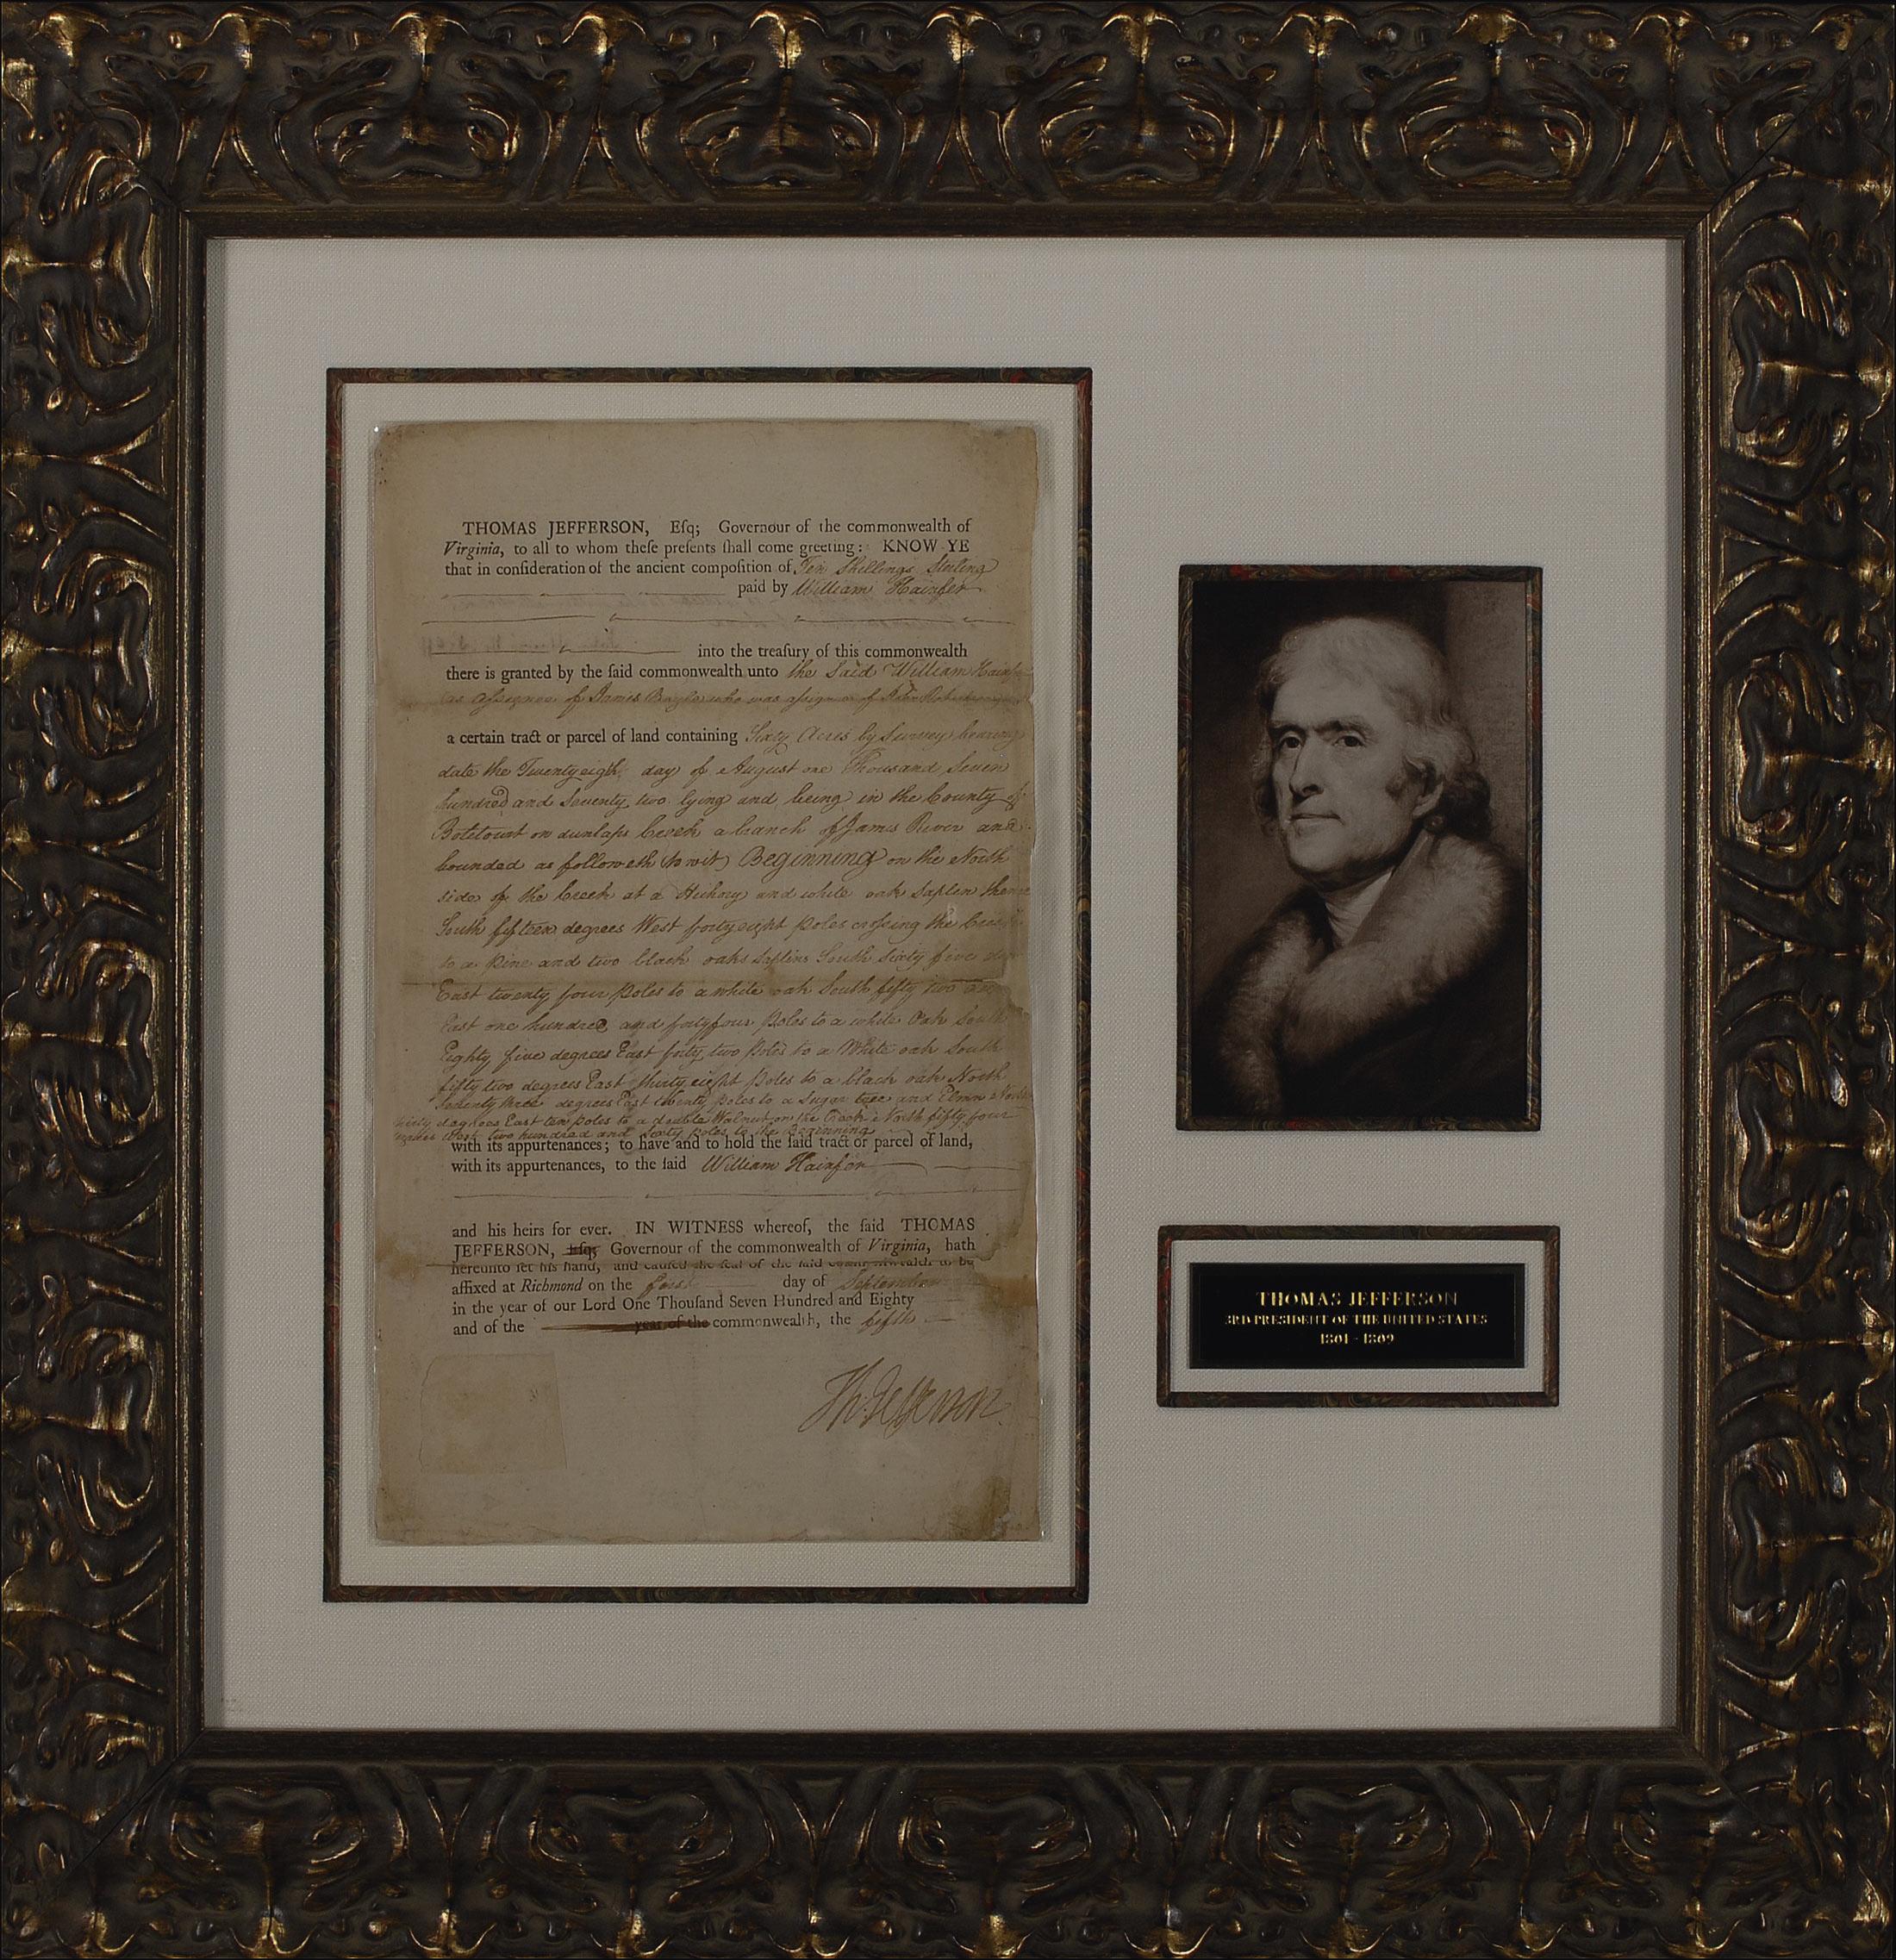 THOMAS JEFFERSON, Eſq; Governour of the commonwealth of
Virginia, to all to whom theſe preſents ſhall come greeting: KNOW YE
that in conſideration of the ancient compoſition of Ten Shillings Sterling
paid by William Hainfer
into the treaſury of this commonwealth
there is granted by the ſaid commonwealth unto the Said William
as aſsignee of James who was aſsignee of John
a certain tract or parcel of land containing Sixty Acres by Survey bearing
date the Twenty eight day of August one Thousand Seven
hundred and Seventy two lying and being in the County of
Botetourt on dunlaps Creek a branch of James River and
bounded as followeth (to wit) Beginning on the North
side of the Creek at a Hickory and white oak Saplin thence
South fifteen degrees West forty eight Poles croſsing the
to a Pine and two black oaks Saplins South Sixty five
East twenty four Poles to a white oak South fifty two
East one hundred and forty four Poles to a white Oak South
Eighty five degrees East forty two Poles to a White oak South
fifty two degrees East thirty eight Poles to a black oak North
Seventy three degrees East twenty Poles to a Sugar tree and
thirty degrees East ten poles to a double Walnut on the North fifty four
West two hundred and Sixty poles to the Beginning
with its appurtenances; to have and to hold the ſaid tract or parcel of land,
with its appurtenances, to the ſaid William Hainfer
and his heirs for ever. IN WITNESS whereof, the ſaid THOMAS
JEFFERSON, Eſq; Governour of the commonwealth of Virginia, hath
hereunto ſet his hand, and cauſed the ſeal of the ſaid commonwealth to be
affixed at Richmond on the first day of September
in the year of our Lord One Thouſand Seven Hundred and Eighty
and of the year of the commonwealth, the fifth
Th: Jefferson
THOMAS JEFFERSON
3RD PRESIDENT OF THE UNITED STATES
1801 - 1809